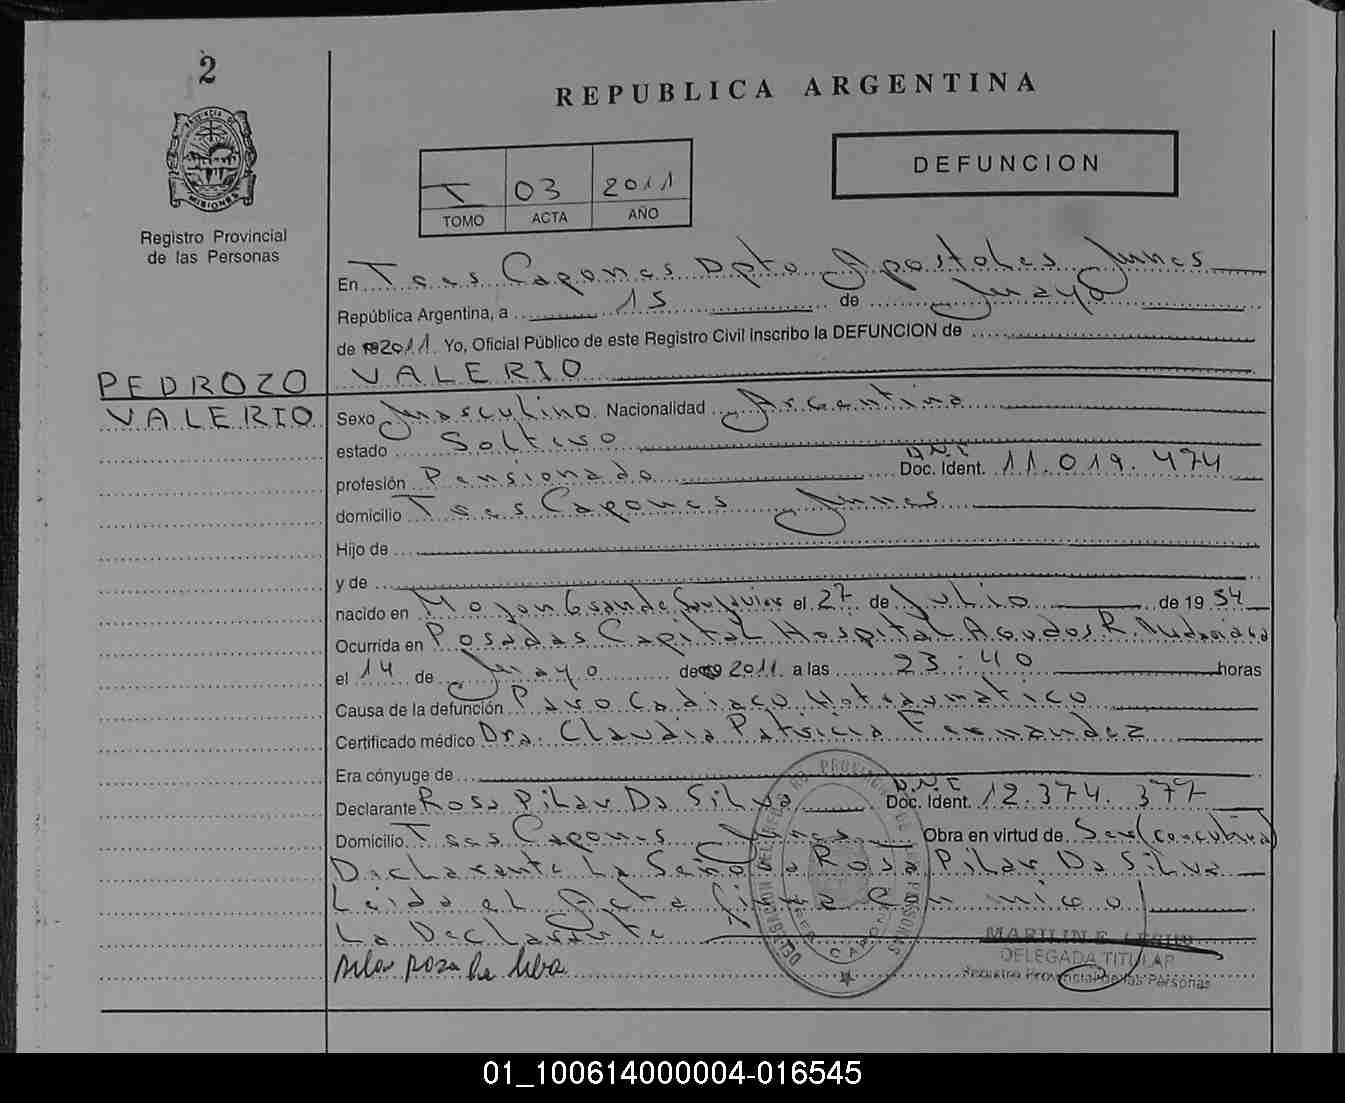 2
REPUBLICA ARGENTINA
PROVINCIA DE
MISIONES
Registro Provincial
de las Personas
I 03 2011
TOMO ACTA AÑO
DEFUNCION
En Tres Capones Dpto Apostoles Mnes
República Argentina, a 15 de Mayo
de 2011. Yo, Oficial Público de este Registro Civil inscribo la DEFUNCION de
PEDROZO VALERIO
VALERIO
Sexo Masculino Nacionalidad Argentina
estado Soltero
profesión Pensionado D.N.I Doc. Ident. 11.019.474
domicilio Tres Capones Mnes
Hijo de
y de
nacido en Mojon Grande San Javier el 27 de Julio de 1954
Ocurrida en Posadas Capital Hospital Agudos R. Madariaga
el 14 de Mayo de 2011 a las 23:40 horas
Causa de la defunción Paro Cadiaco
Certificado médico Dra. Claudia Patricia Fernandez
Era cónyuge de
Declarante Rosa Pilar Da Silva D.N.I Doc. Ident. 12.374.377
Domicilio Tres Capones Mnes Obra en virtud de Ser (concubina)
Declarante La Señora Rosa Pilar Da Silva
Leida el Acta firma Con migo
La Declarante
DELEGADA TITULAR
Registro Provincial de las Personas
Pilar Rosa Da Silva
01_100614000004-016545